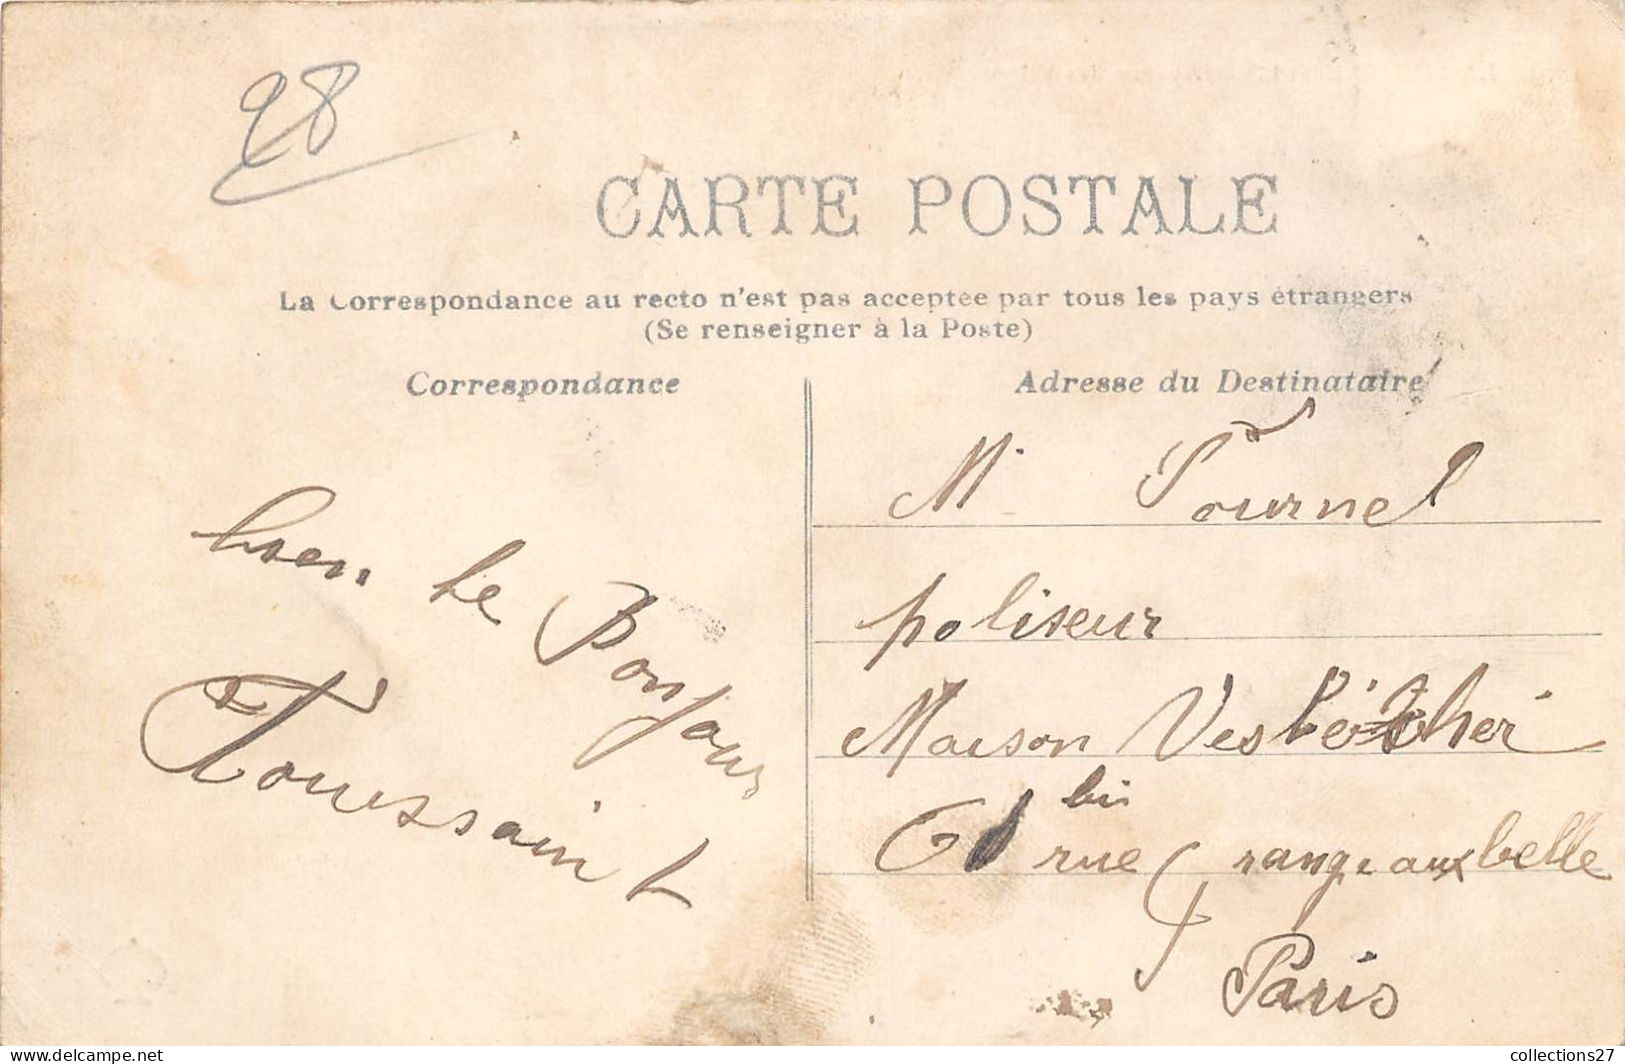 28
CARTE POSTALE
La Correspondance au recto n'est pas acceptée par tous les pays étrangers
(Se renseigner à la Poste)
Correspondance
Adresse du Destinataire
bien le Bonjour
Toussaint
M. Tournel
poliseur
Maison
61 bis rue Grange aux belle
Paris
collections27